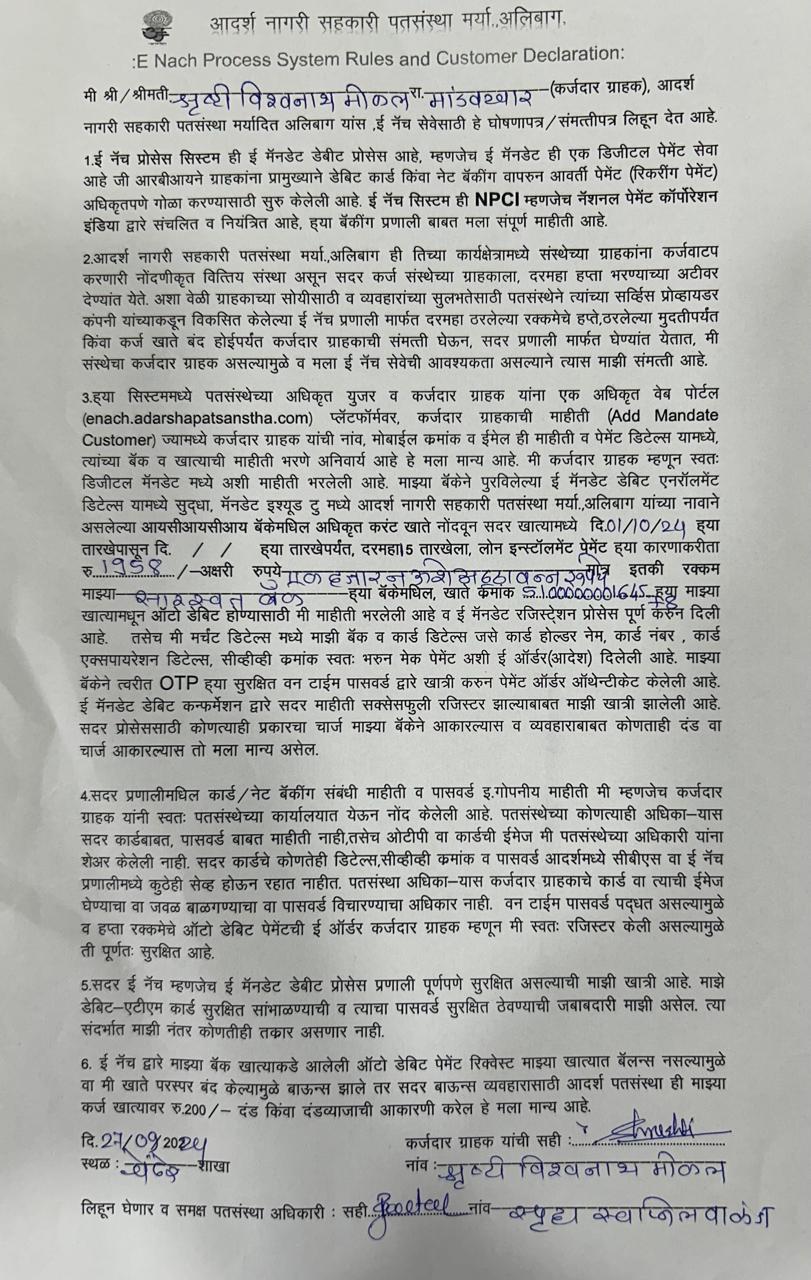 आदर्श नागरी सहकारी पतसंस्था मर्या.,अलिबाग.
:E Nach Process System Rules and Customer Declaration:
मी श्री/श्रीमती सृष्टी विश्वनाथ मोकल रा. मांडवखार (कर्जदार ग्राहक), आदर्श
नागरी सहकारी पतसंस्था मर्यादित अलिबाग यांस ,ई नॅच सेवेसाठी हे घोषणापत्र/संमत्तीपत्र लिहून देत आहे.
1.ई नॅच प्रोसेस सिस्टम ही ई मॅनडेट डेबीट प्रोसेस आहे, म्हणजेच ई मॅनडेट ही एक डिजीटल पेमेंट सेवा
आहे जी आरबीआयने ग्राहकांना प्रामुख्याने डेबिट कार्ड किंवा नेट बॅकींग वापरुन आवर्ती पेमेंट (रिकरींग पेमेंट)
अधिकृतपणे गोळा करण्यासाठी सुरु केलेली आहे. ई नॅच सिस्टम ही NPCI म्हणजेच नॅशनल पेमेंट कॉर्पोरेशन
इंडिया द्वारे संचलित व नियंत्रित आहे, ह्या बॅकींग प्रणाली बाबत मला संपूर्ण माहीती आहे.
2.आदर्श नागरी सहकारी पतसंस्था मर्या.,अलिबाग ही तिच्या कार्यक्षेत्रामध्ये संस्थेच्या ग्राहकांना कर्जवाटप
करणारी नोंदणीकृत वित्तिय संस्था असून सदर कर्ज संस्थेच्या ग्राहकाला, दरमहा हप्ता भरण्याच्या अटीवर
देण्यांत येते. अशा वेळी ग्राहकाच्या सोयीसाठी व व्यवहारांच्या सुलभतेसाठी पतसंस्थेने त्यांच्या सर्व्हिस प्रोव्हायडर
कंपनी यांच्याकडून विकसित केलेल्या ई नॅच प्रणाली मार्फत दरमहा ठरलेल्या रक्कमेचे हप्ते,ठरलेल्या मुदतीपर्यंत
किंवा कर्ज खाते बंद होईपर्यंत कर्जदार ग्राहकाची संमत्ती घेऊन, सदर प्रणाली मार्फत घेण्यांत येतात, मी
संस्थेचा कर्जदार ग्राहक असल्यामुळे व मला ई नॅच सेवेची आवश्यकता असल्याने त्यास माझी संमत्ती आहे.
3.ह्या सिस्टममध्ये पतसंस्थेच्या अधिकृत युजर व कर्जदार ग्राहक यांना एक अधिकृत वेब पोर्टल
(enach.adarshapatsanstha.com) प्लॅटफॉर्मवर, कर्जदार ग्राहकाची माहीती (Add Mandate
Customer) ज्यामध्ये कर्जदार ग्राहक यांची नांव, मोबाईल क्रमांक व ईमेल ही माहीती व पेमेंट डिटेल्स यामध्ये,
त्यांच्या बॅक व खात्याची माहीती भरणे अनिवार्य आहे हे मला मान्य आहे. मी कर्जदार ग्राहक म्हणून स्वतः
डिजीटल मॅनडेट मध्ये अशी माहीती भरलेली आहे. माझ्या बॅकेने पुरविलेल्या ई मॅनडेट डेबिट एनरॉलमेंट
डिटेल्स यामध्ये सुद्धा, मॅनडेट इश्यूड टु मध्ये आदर्श नागरी सहकारी पतसंस्था मर्या.,अलिबाग यांच्या नावाने
असलेल्या आयसीआयसीआय बॅकेमधिल अधिकृत करंट खाते नोंदवून सदर खात्यामध्ये दि.01/10/24 ह्या
तारखेपासून दि. / / ह्या तारखेपर्यंत, दरमहा15 तारखेला, लोन इन्स्टॉलमेंट पेमेंट ह्या कारणाकरीता
रु.1958/-अक्षरी रुपये एक हजार नऊशे अठ्ठावन्न रुपये मात्र इतकी रक्कम
माझ्या सारस्वत बँक ह्या बॅकेमधिल, खाते क्रमांक ह्या माझ्या
खात्यामधून ऑटो डेबिट होण्यासाठी मी माहीती भरलेली आहे व ई मॅनडेट रजिस्ट्रेशन प्रोसेस पूर्ण करुन दिली
आहे. तसेच मी मर्चंट डिटेल्स मध्ये माझी बॅक व कार्ड डिटेल्स जसे कार्ड होल्डर नेम, कार्ड नंबर , कार्ड
एक्सपायरेशन डिटेल्स, सीव्हीव्ही क्रमांक स्वतः भरुन मेक पेमेंट अशी ई ऑर्डर(आदेश) दिलेली आहे. माझ्या
बॅकेने त्वरीत OTP ह्या सुरक्षित वन टाईम पासवर्ड द्वारे खात्री करुन पेमेंट ऑर्डर ऑथेन्टीकेट केलेली आहे.
ई मॅनडेट डेबिट कन्फर्मेशन द्वारे सदर माहीती सक्सेसफुली रजिस्टर झाल्याबाबत माझी खात्री झालेली आहे.
सदर प्रोसेससाठी कोणत्याही प्रकारचा चार्ज माझ्या बॅकेने आकारल्यास व व्यवहाराबाबत कोणताही दंड वा
चार्ज आकारल्यास तो मला मान्य असेल.
4.सदर प्रणालीमधिल कार्ड/नेट बॅकींग संबंधी माहीती व पासवर्ड इ.गोपनीय माहीती मी म्हणजेच कर्जदार
ग्राहक यांनी स्वतः पतसंस्थेच्या कार्यालयात येऊन नोंद केलेली आहे. पतसंस्थेच्या कोणत्याही अधिका-यास
सदर कार्डबाबत, पासवर्ड बाबत माहीती नाही,तसेच ओटीपी वा कार्डची ईमेज मी पतसंस्थेच्या अधिकारी यांना
शेअर केलेली नाही. सदर कार्डचे कोणतेही डिटेल्स,सीव्हीव्ही क्रमांक व पासवर्ड आदर्शमध्ये सीबीएस वा ई नॅच
प्रणालीमध्ये कुठेही सेव्ह होऊन रहात नाहीत. पतसंस्था अधिका-यास कर्जदार ग्राहकाचे कार्ड वा त्याची ईमेज
घेण्याचा वा जवळ बाळगण्याचा वा पासवर्ड विचारण्याचा अधिकार नाही. वन टाईम पासवर्ड पद्धत असल्यामुळे
व हप्ता रक्कमेचे ऑटो डेबिट पेमेंटची ई ऑर्डर कर्जदार ग्राहक म्हणून मी स्वतः रजिस्टर केली असल्यामुळे
ती पूर्णतः सुरक्षित आहे.
5.सदर ई नॅच म्हणजेच ई मॅनडेट डेबीट प्रोसेस प्रणाली पूर्णपणे सुरक्षित असल्याची माझी खात्री आहे. माझे
डेबिट-एटीएम कार्ड सुरक्षित सांभाळण्याची व त्याचा पासवर्ड सुरक्षित ठेवण्याची जबाबदारी माझी असेल. त्या
संदर्भात माझी नंतर कोणतीही तकार असणार नाही.
6. ई नॅच द्वारे माझ्या बॅक खात्याकडे आलेली ऑटो डेबिट पेमेंट रिक्वेस्ट माझ्या खात्यात बॅलन्स नसल्यामुळे
वा मी खाते परस्पर बंद केल्यामुळे बाऊन्स झाले तर सदर बाऊन्स व्यवहारासाठी आदर्श पतसंस्था ही माझ्या
कर्ज खात्यावर रु.200/- दंड किंवा दंडव्याजाची आकारणी करेल हे मला मान्य आहे.
दि.27/09/2024 कर्जदार ग्राहक यांची सही :
स्थळ : शाखा नांव: सृष्टी विश्वनाथ मोकल
लिहून घेणार व समक्ष पतसंस्था अधिकारी : सही नांव स्पृहा स्वप्निल वाळंज